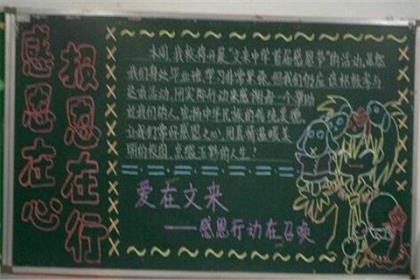 感恩在心
报恩在行
本周，我校将开展“文来中学首届感恩节”的活动。虽然
我们身处毕业班，学习非常紧张，但我们仍应该积极参与
这项活动，用实际行动来感谢每一个帮助
过我们的人，发扬中华民族的传统美德。
让我们常怀感恩之心，用真情温暖美
丽的校园，点缀五野的人生！
爱在文来
——感恩行动在召唤